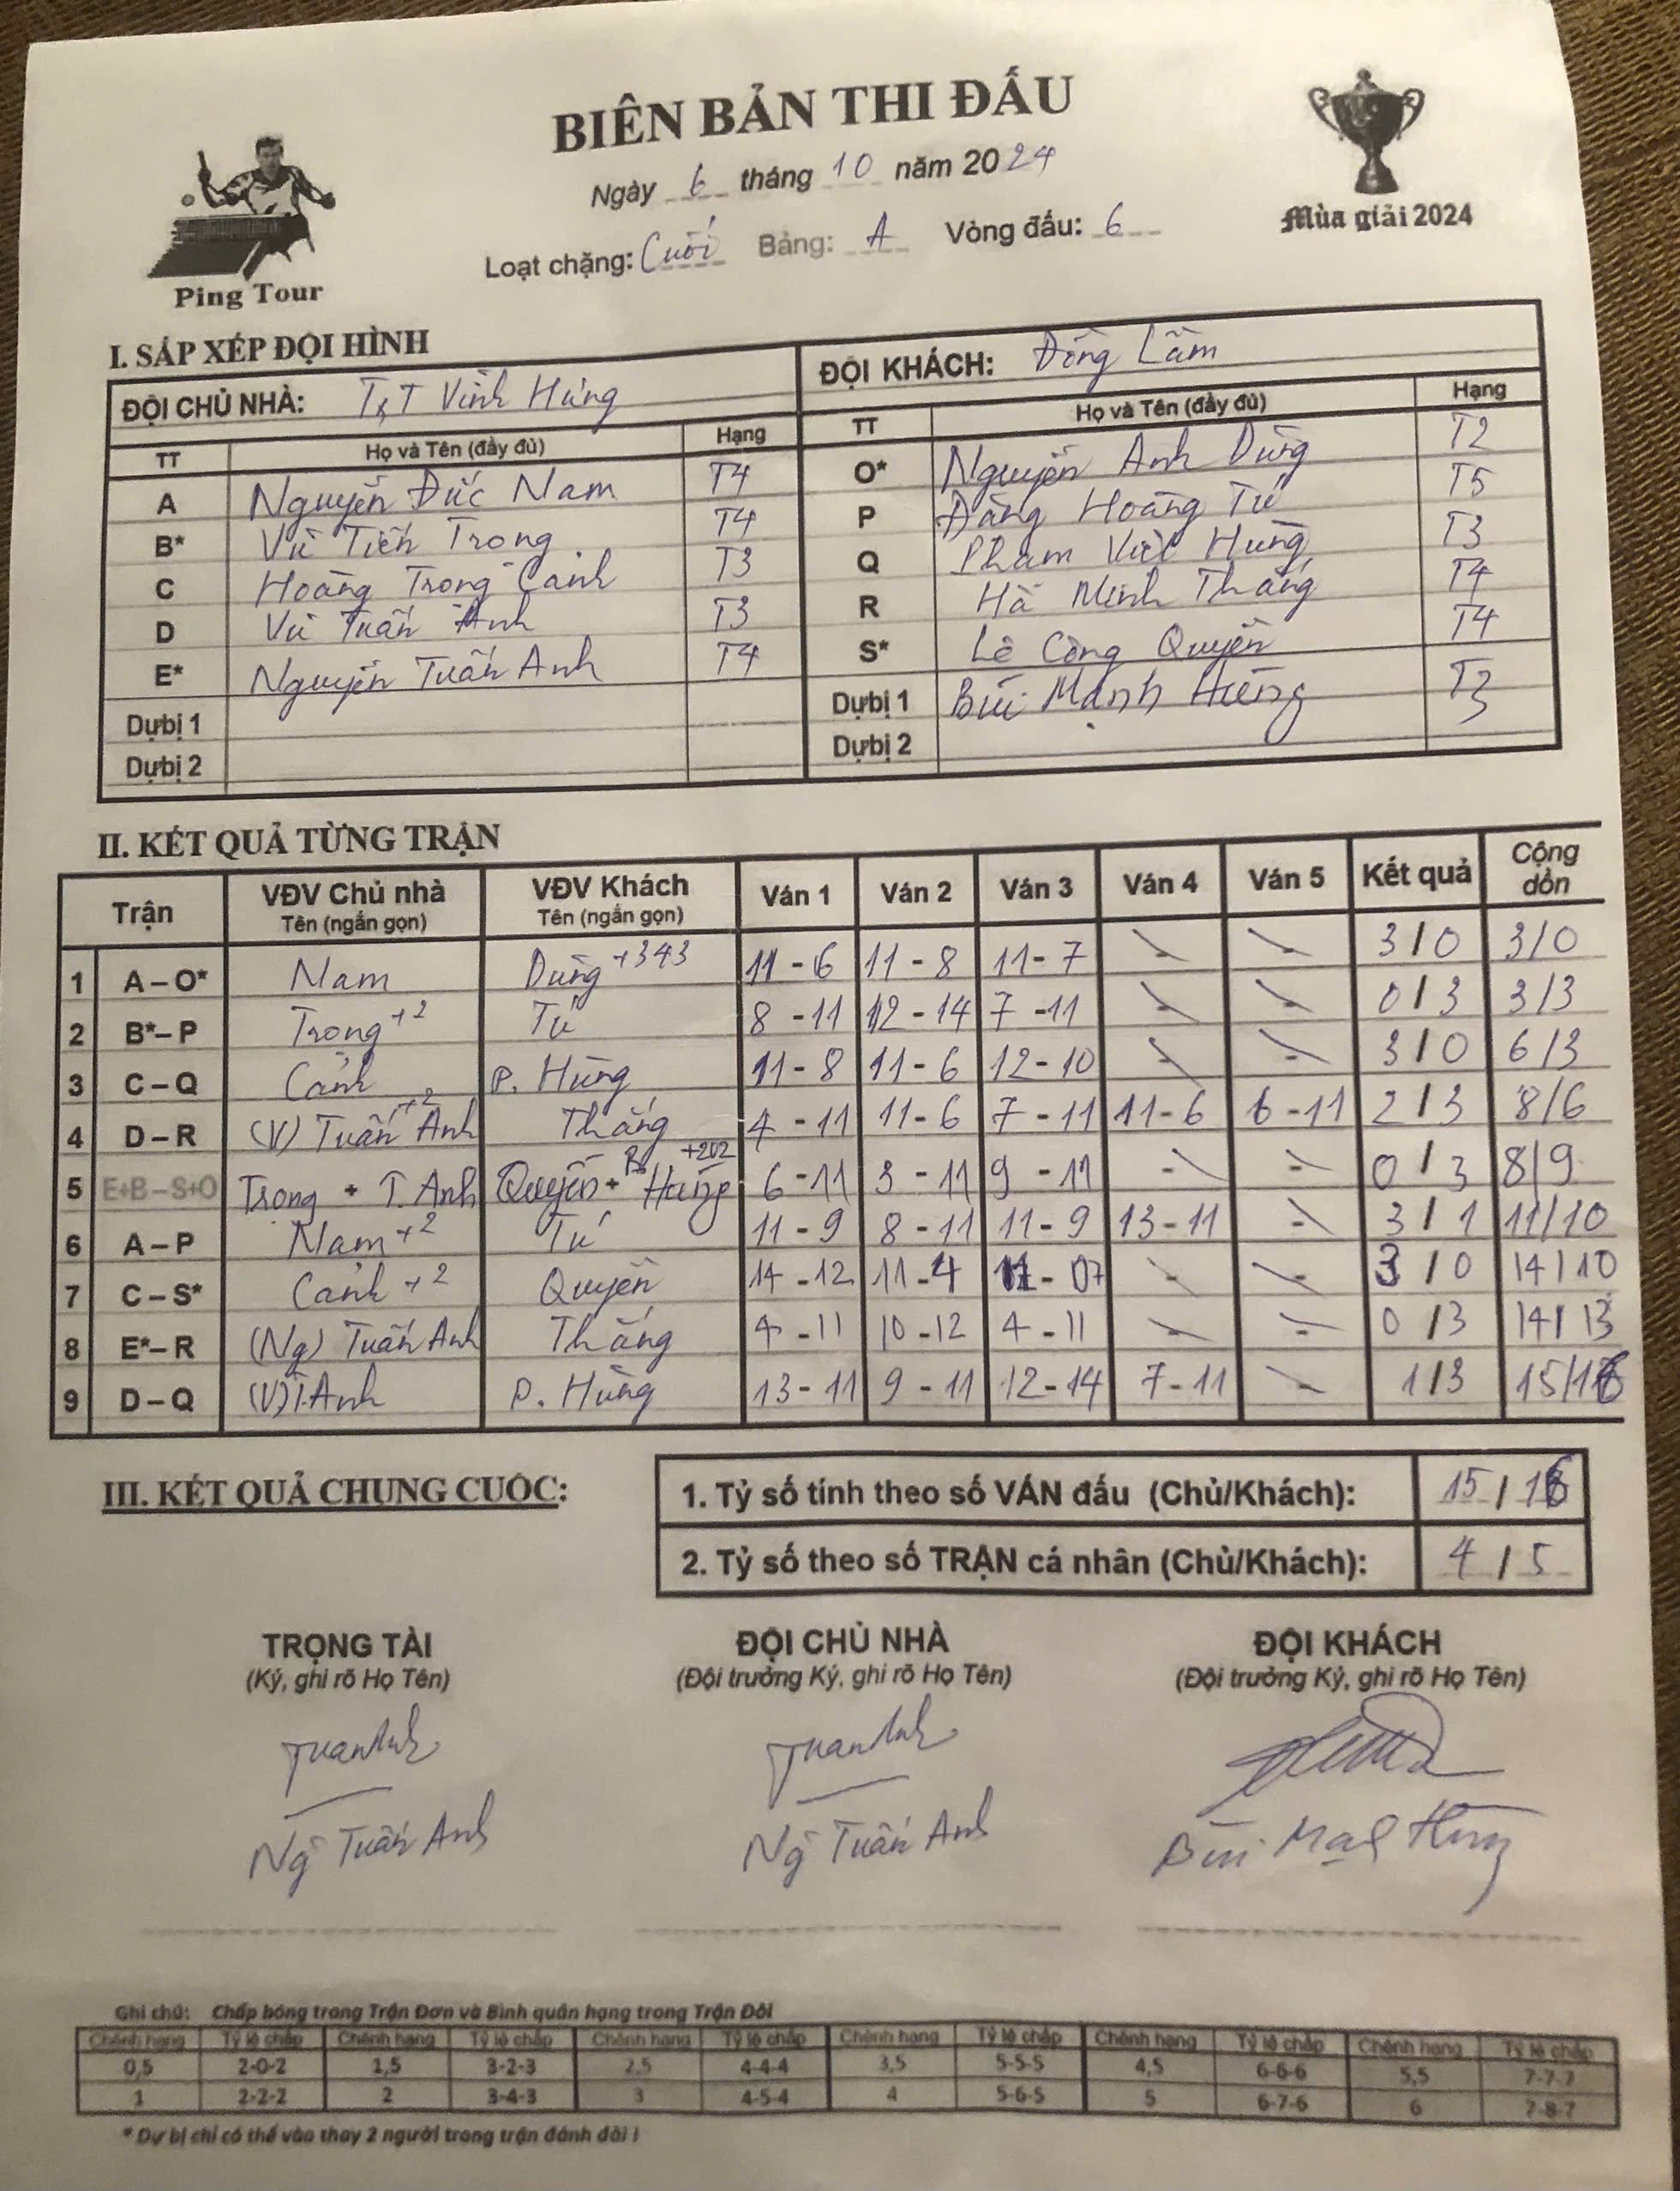 BIÊN BẢN THI ĐẤU
Ngày 6 tháng 10 năm 2024
Loạt chặng: Cuối Bảng: A Vòng đấu: 6
Ping Tour
Mùa giải 2024
I. SẮP XẾP ĐỘI HÌNH
ĐỘI CHỦ NHÀ: T&T Vĩnh Hưng ĐỘI KHÁCH: Đồng Lầm
TT Họ và Tên (đầy đủ) Hạng TT Họ và Tên (đầy đủ) Hạng
A Nguyễn Đức Nam T4 O* Nguyễn Anh Dũng T2
B* Vũ Tiến Trọng T4 P Đặng Hoàng Tú T5
C Hoàng Trọng Cảnh T3 Q Phạm Việt Hùng T3
D Vũ Tuấn Anh T3 R Hà Minh Thắng T4
E* Nguyễn Tuấn Anh T4 S* Lê Công Quyền T4
Dự bị 1 Dự bị 1 Bùi Mạnh Hùng T3
Dự bị 2 Dự bị 2
II. KẾT QUẢ TỪNG TRẬN
Trận VĐV Chủ nhà Tên (ngắn gọn) VĐV Khách Tên (ngắn gọn) Ván 1 Ván 2 Ván 3 Ván 4 Ván 5 Kết quả Cộng dồn
1 A – O* Nam Dũng +343 11 - 6 11 - 8 11 - 7 - - 3 / 0 3/0
2 B* – P Trọng +2 Tú 8 - 11 12 - 14 7 - 11 - - 0 / 3 3/3
3 C – Q Cảnh P. Hùng 11 - 8 11 - 6 12 - 10 - - 3 / 0 6/3
4 D – R (V) Tuấn Anh +2 Thắng 4 - 11 11 - 6 7 - 11 11 - 6 6 - 11 2 / 3 8/6
5 E+B – S+O Trọng + T. Anh Quyền + B. Hùng +202 6 - 11 3 - 11 9 - 11 - - 0 / 3 8/9
6 A – P Nam +2 Tú 11 - 9 8 - 11 11 - 9 13 - 11 - 3 / 1 11/10
7 C – S* Cảnh +2 Quyền 14 - 12 11 - 4 11 - 07 - - 3 / 0 14/10
8 E* – R (Ng) Tuấn Anh Thắng 4 - 11 10 - 12 4 - 11 - - 0 / 3 14/13
9 D – Q (V) T. Anh P. Hùng 13 - 11 9 - 11 12 - 14 7 - 11 - 1 / 3 15/16
III. KẾT QUẢ CHUNG CUỘC:
1. Tỷ số tính theo số VÁN đấu (Chủ/Khách): 15 / 16
2. Tỷ số theo số TRẬN cá nhân (Chủ/Khách): 4 / 5
TRỌNG TÀI ĐỘI CHỦ NHÀ ĐỘI KHÁCH
(Ký, ghi rõ Họ Tên) (Đội trưởng Ký, ghi rõ Họ Tên) (Đội trưởng Ký, ghi rõ Họ Tên)
TuanAnh TuanAnh
Ng Tuấn Anh Ng Tuấn Anh Bùi Mạnh Hùng
Ghi chú: Chấp bóng trong Trận Đơn và Bình quân hạng trong Trận Đôi
Chênh hạng Tỷ lệ chấp Chênh hạng Tỷ lệ chấp Chênh hạng Tỷ lệ chấp Chênh hạng Tỷ lệ chấp Chênh hạng Tỷ lệ chấp Chênh hạng Tỷ lệ chấp
0,5 2-0-2 1,5 3-2-3 2,5 4-4-4 3,5 5-5-5 4,5 6-6-6 5,5 7-7-7
1 2-2-2 2 3-4-3 3 4-5-4 4 5-6-5 5 6-7-6 6 7-8-7
* Dự bị chỉ có thể vào thay 2 người trong trận đánh đôi !